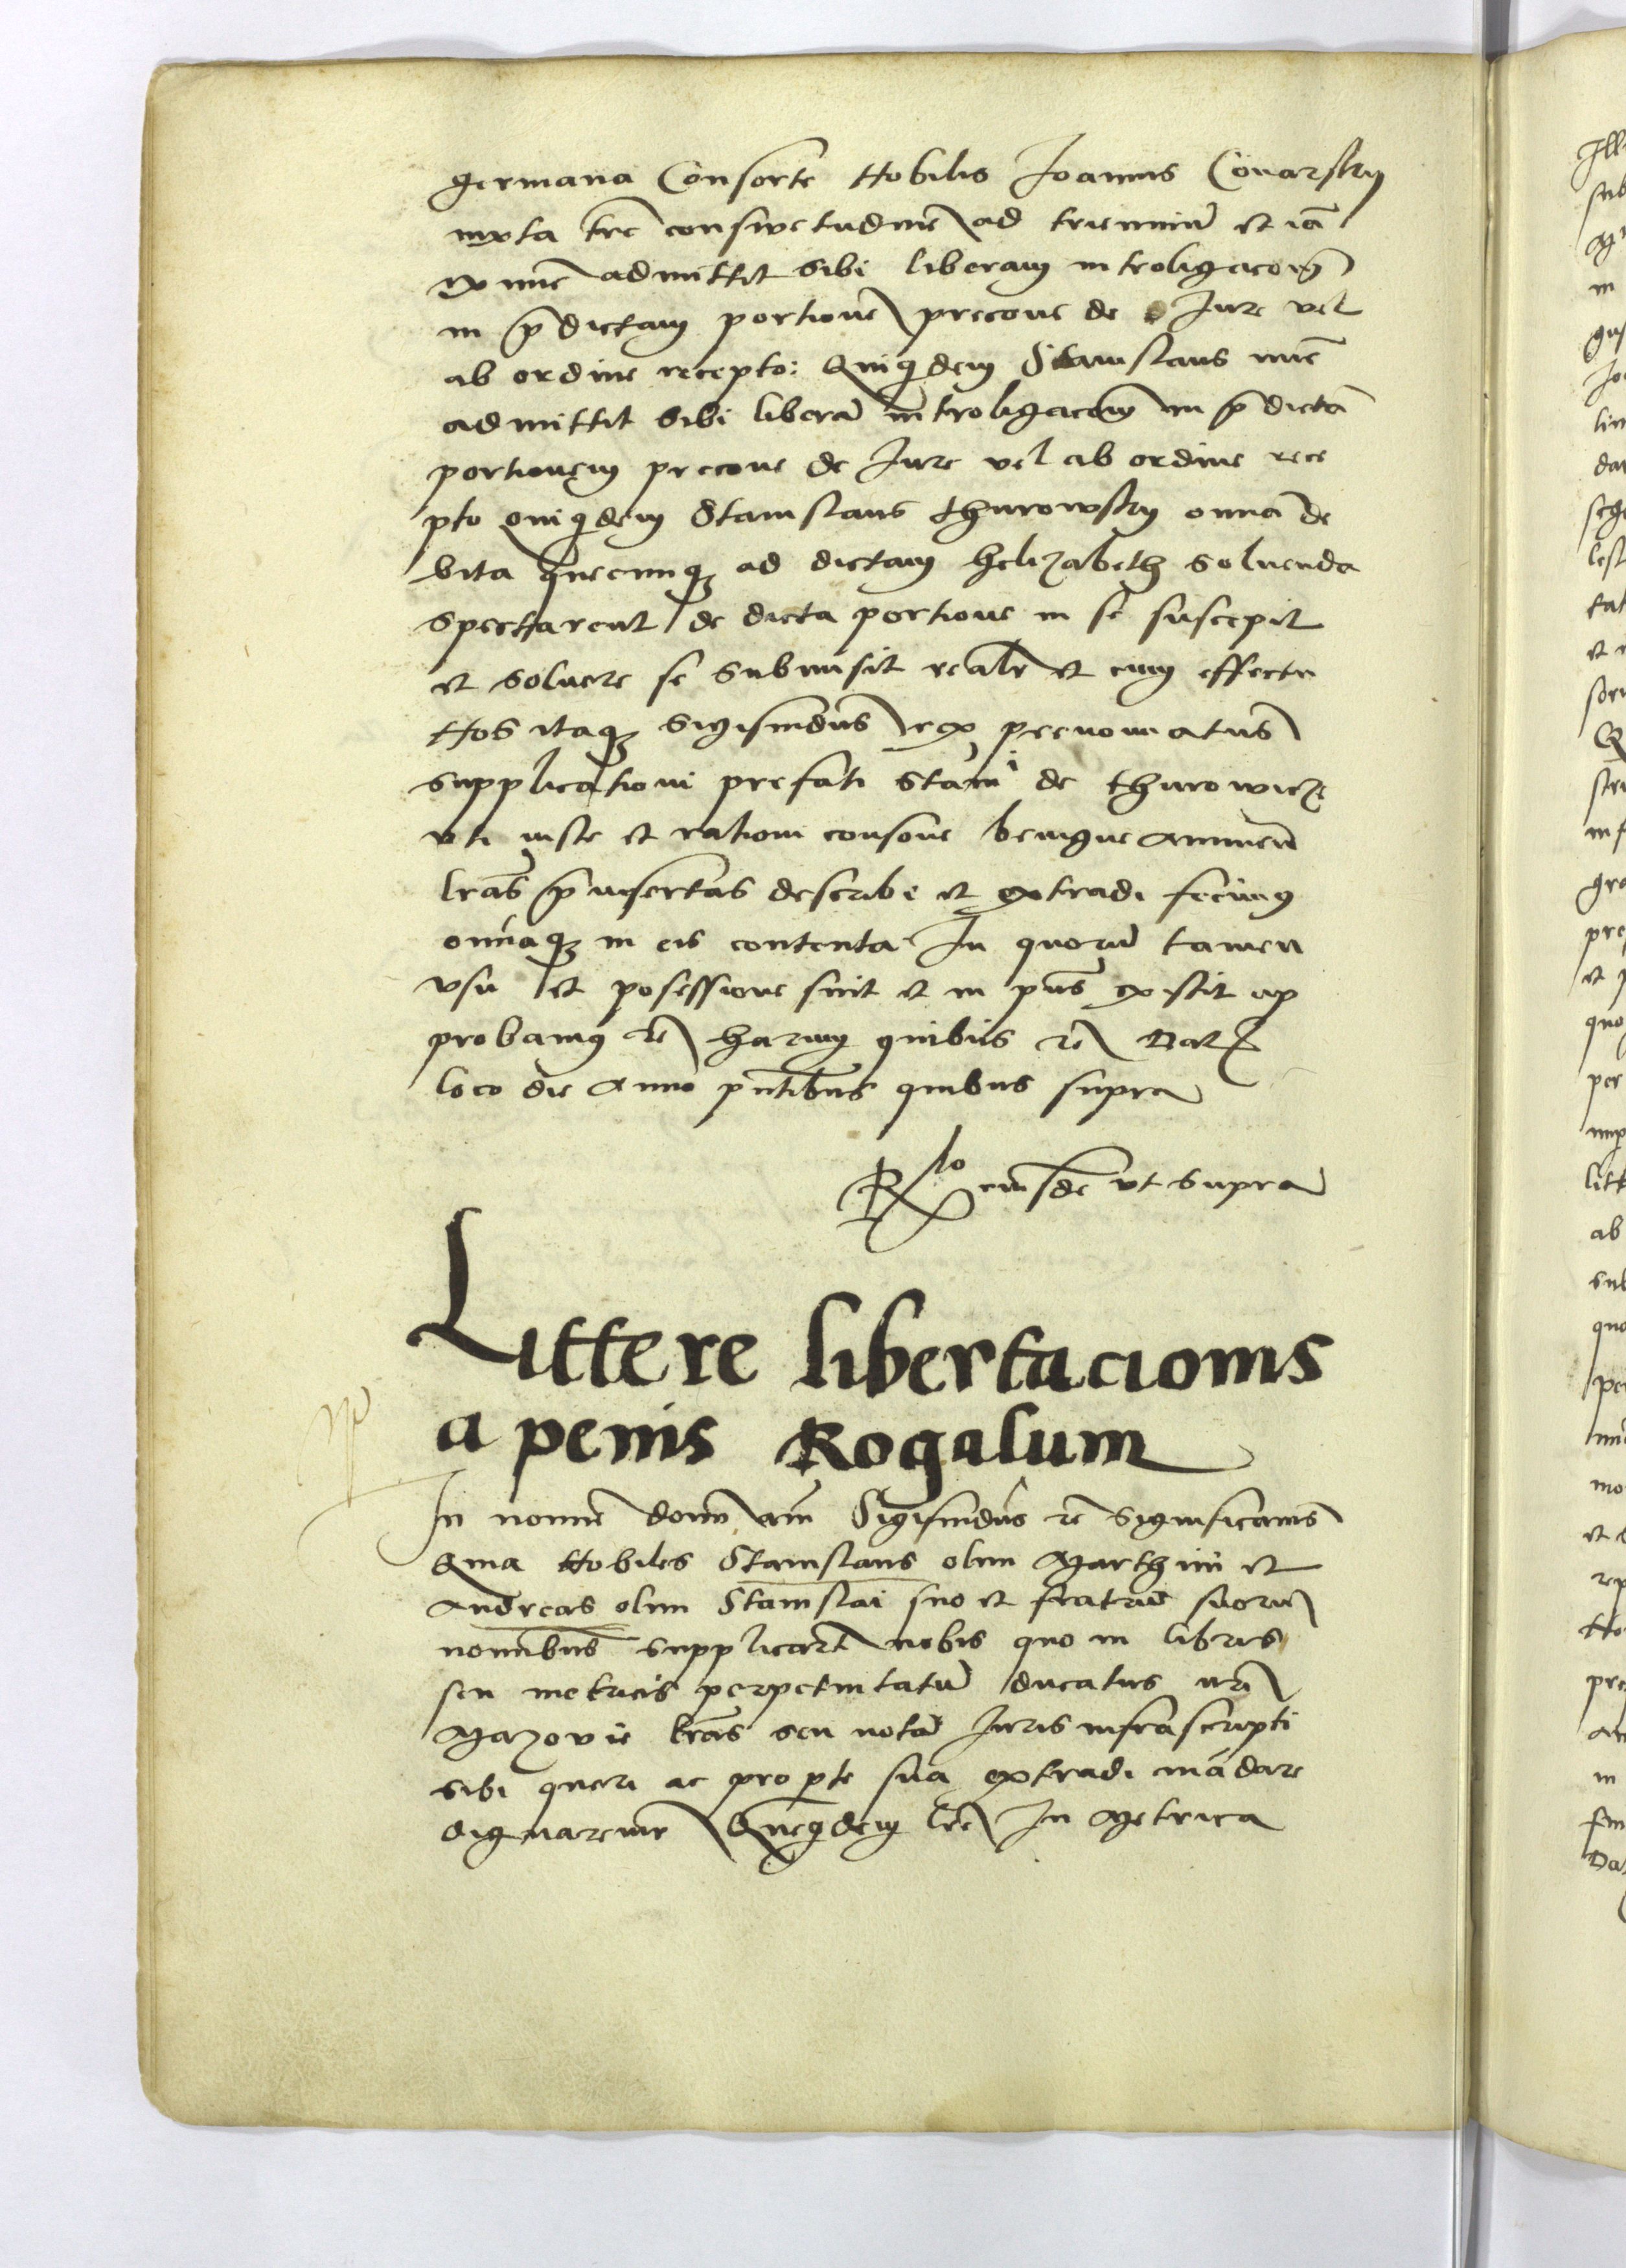 germana Consorte Nobilis Joannis Conarsky
iuxta tre conswetudinē ad trienniū et iā
ex nunc admittit sibi liberam introligacoēm
in p̄dictam portionē precone de Jure vel
ab ordine recepto: Quiquidem Stanislaus nunc
admittit sibi liberā introligacoēm in p̄dictā
portionem precone de Jure vel ab ordine rece
pto Quiquidem Stanislaus Thurowsky omnia de
bita quecunqʒ ad dictam helizabeth soluenda
spectarent de dicta portione in se suscepit
et soluere se submisit realr̄ et cum effectu
Nos itaqʒ Sigismūdus rex prenominatus
supplicationi prefati Stani de Thurowicze
vti iuste et rationi consone benigne annuen̄
lrās p̄insertas describi et extradi fecimꝰ
omniaqʒ in eis contenta In quorū tamen
vsu et posessione fuit et in pn̄s existit ap
probamꝰ rē harum quibus rē Dat
loco die Anno pn̄tibus quibus supra
Rlo eiusdē vt supra
Littere libertacionis
a penis Rogalum
In nomine domini amē Sigismūdus rē Significamus
Quia Nobiles Stanislaus olim Marthini et
Andreas olim Stanislai suo et fratrū suorū
nominibus supplicarūt nobis quo in libris
seu metricis perpetuitatū ducatus nrī
Mazovie lrās seu notā Juris infrascripti
sibi queri ac pro pte sua extradi mādare
dignaremur Quequidem lrē In Metrica